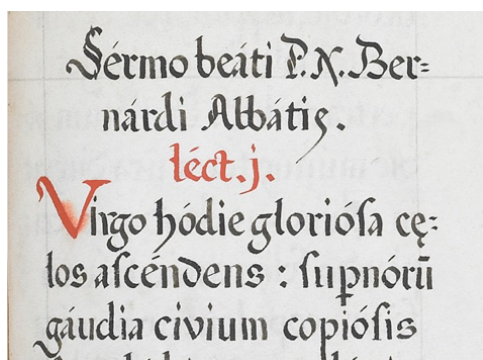 Sérmo beáti P. N. Ber=
nárdi Abbátis.
lect. j.
Virgo hódie glorióſa cę=
los aſcéndens : ſup̱nórū
gáudia civium copióſis